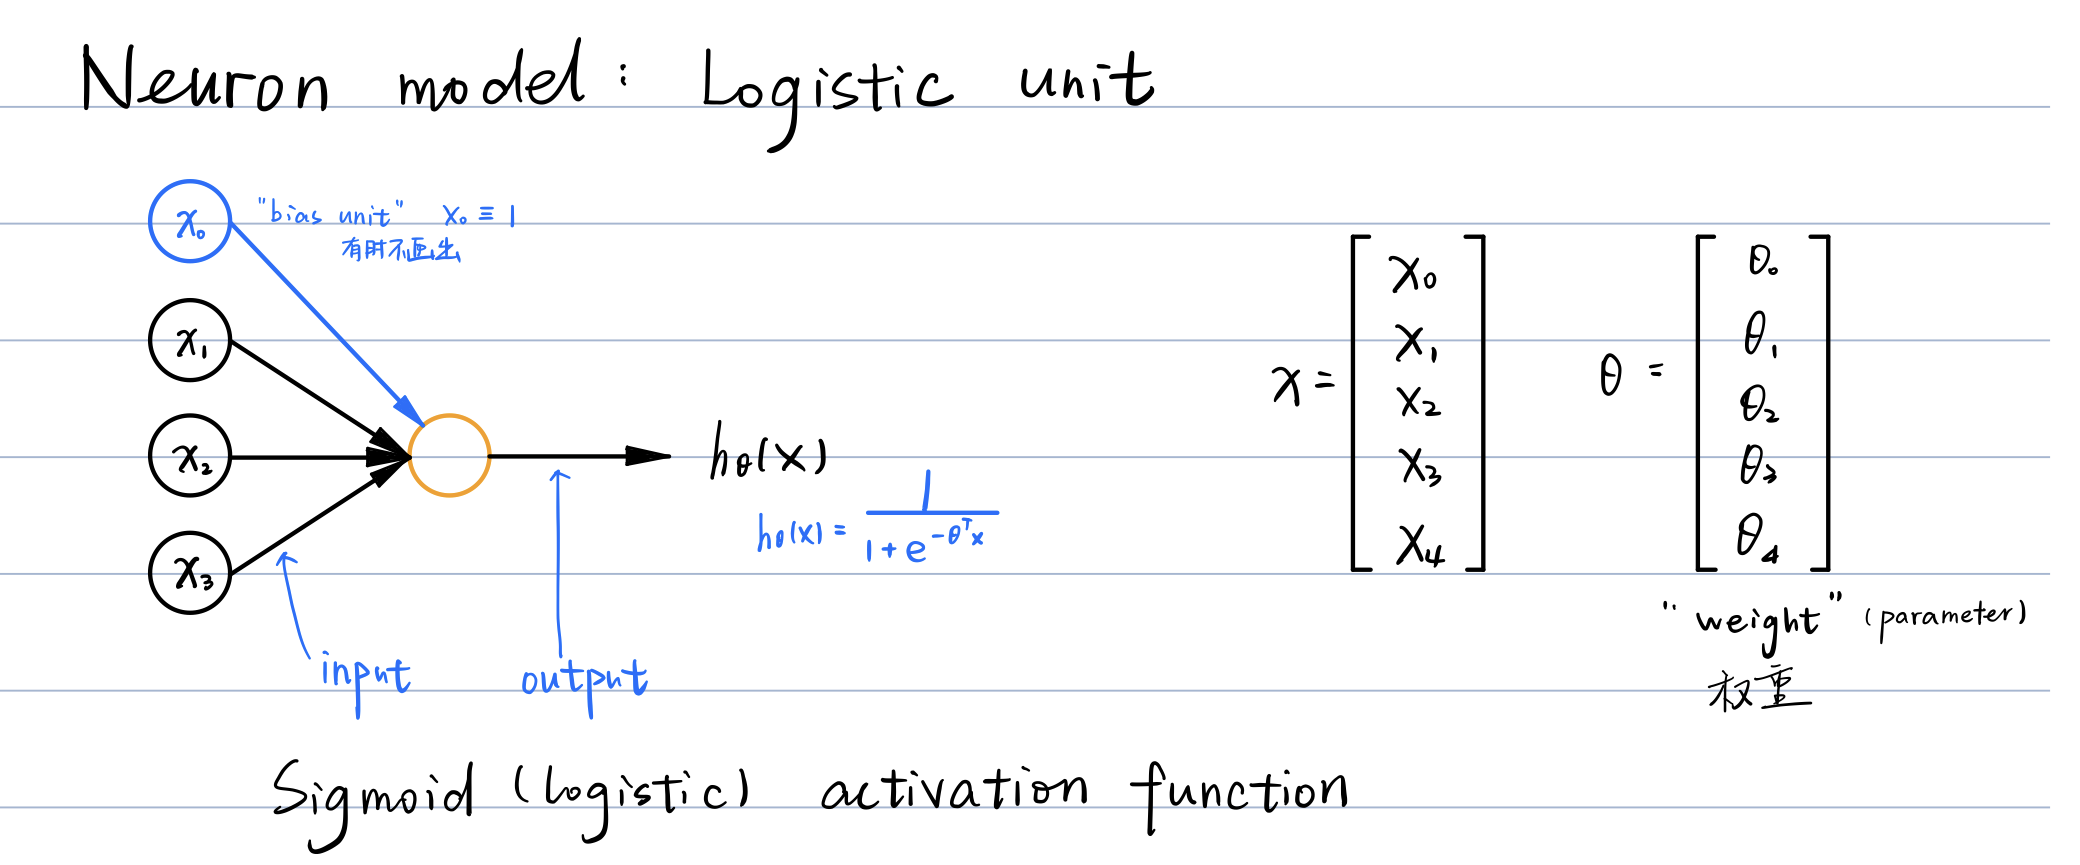 Neuron model: Logistic unit
x₀ "bias unit" x₀ ≡ 1
有时不画出
x₁
x₂
x₃
hθ(x)
hθ(x) = 1 / (1 + e^(-θᵀx))
input
output
x = [x₀ x₁ x₂ x₃ x₄]
θ = [θ₀ θ₁ θ₂ θ₃ θ₄]
"weight" (parameter)
权重
Sigmoid (logistic) activation function